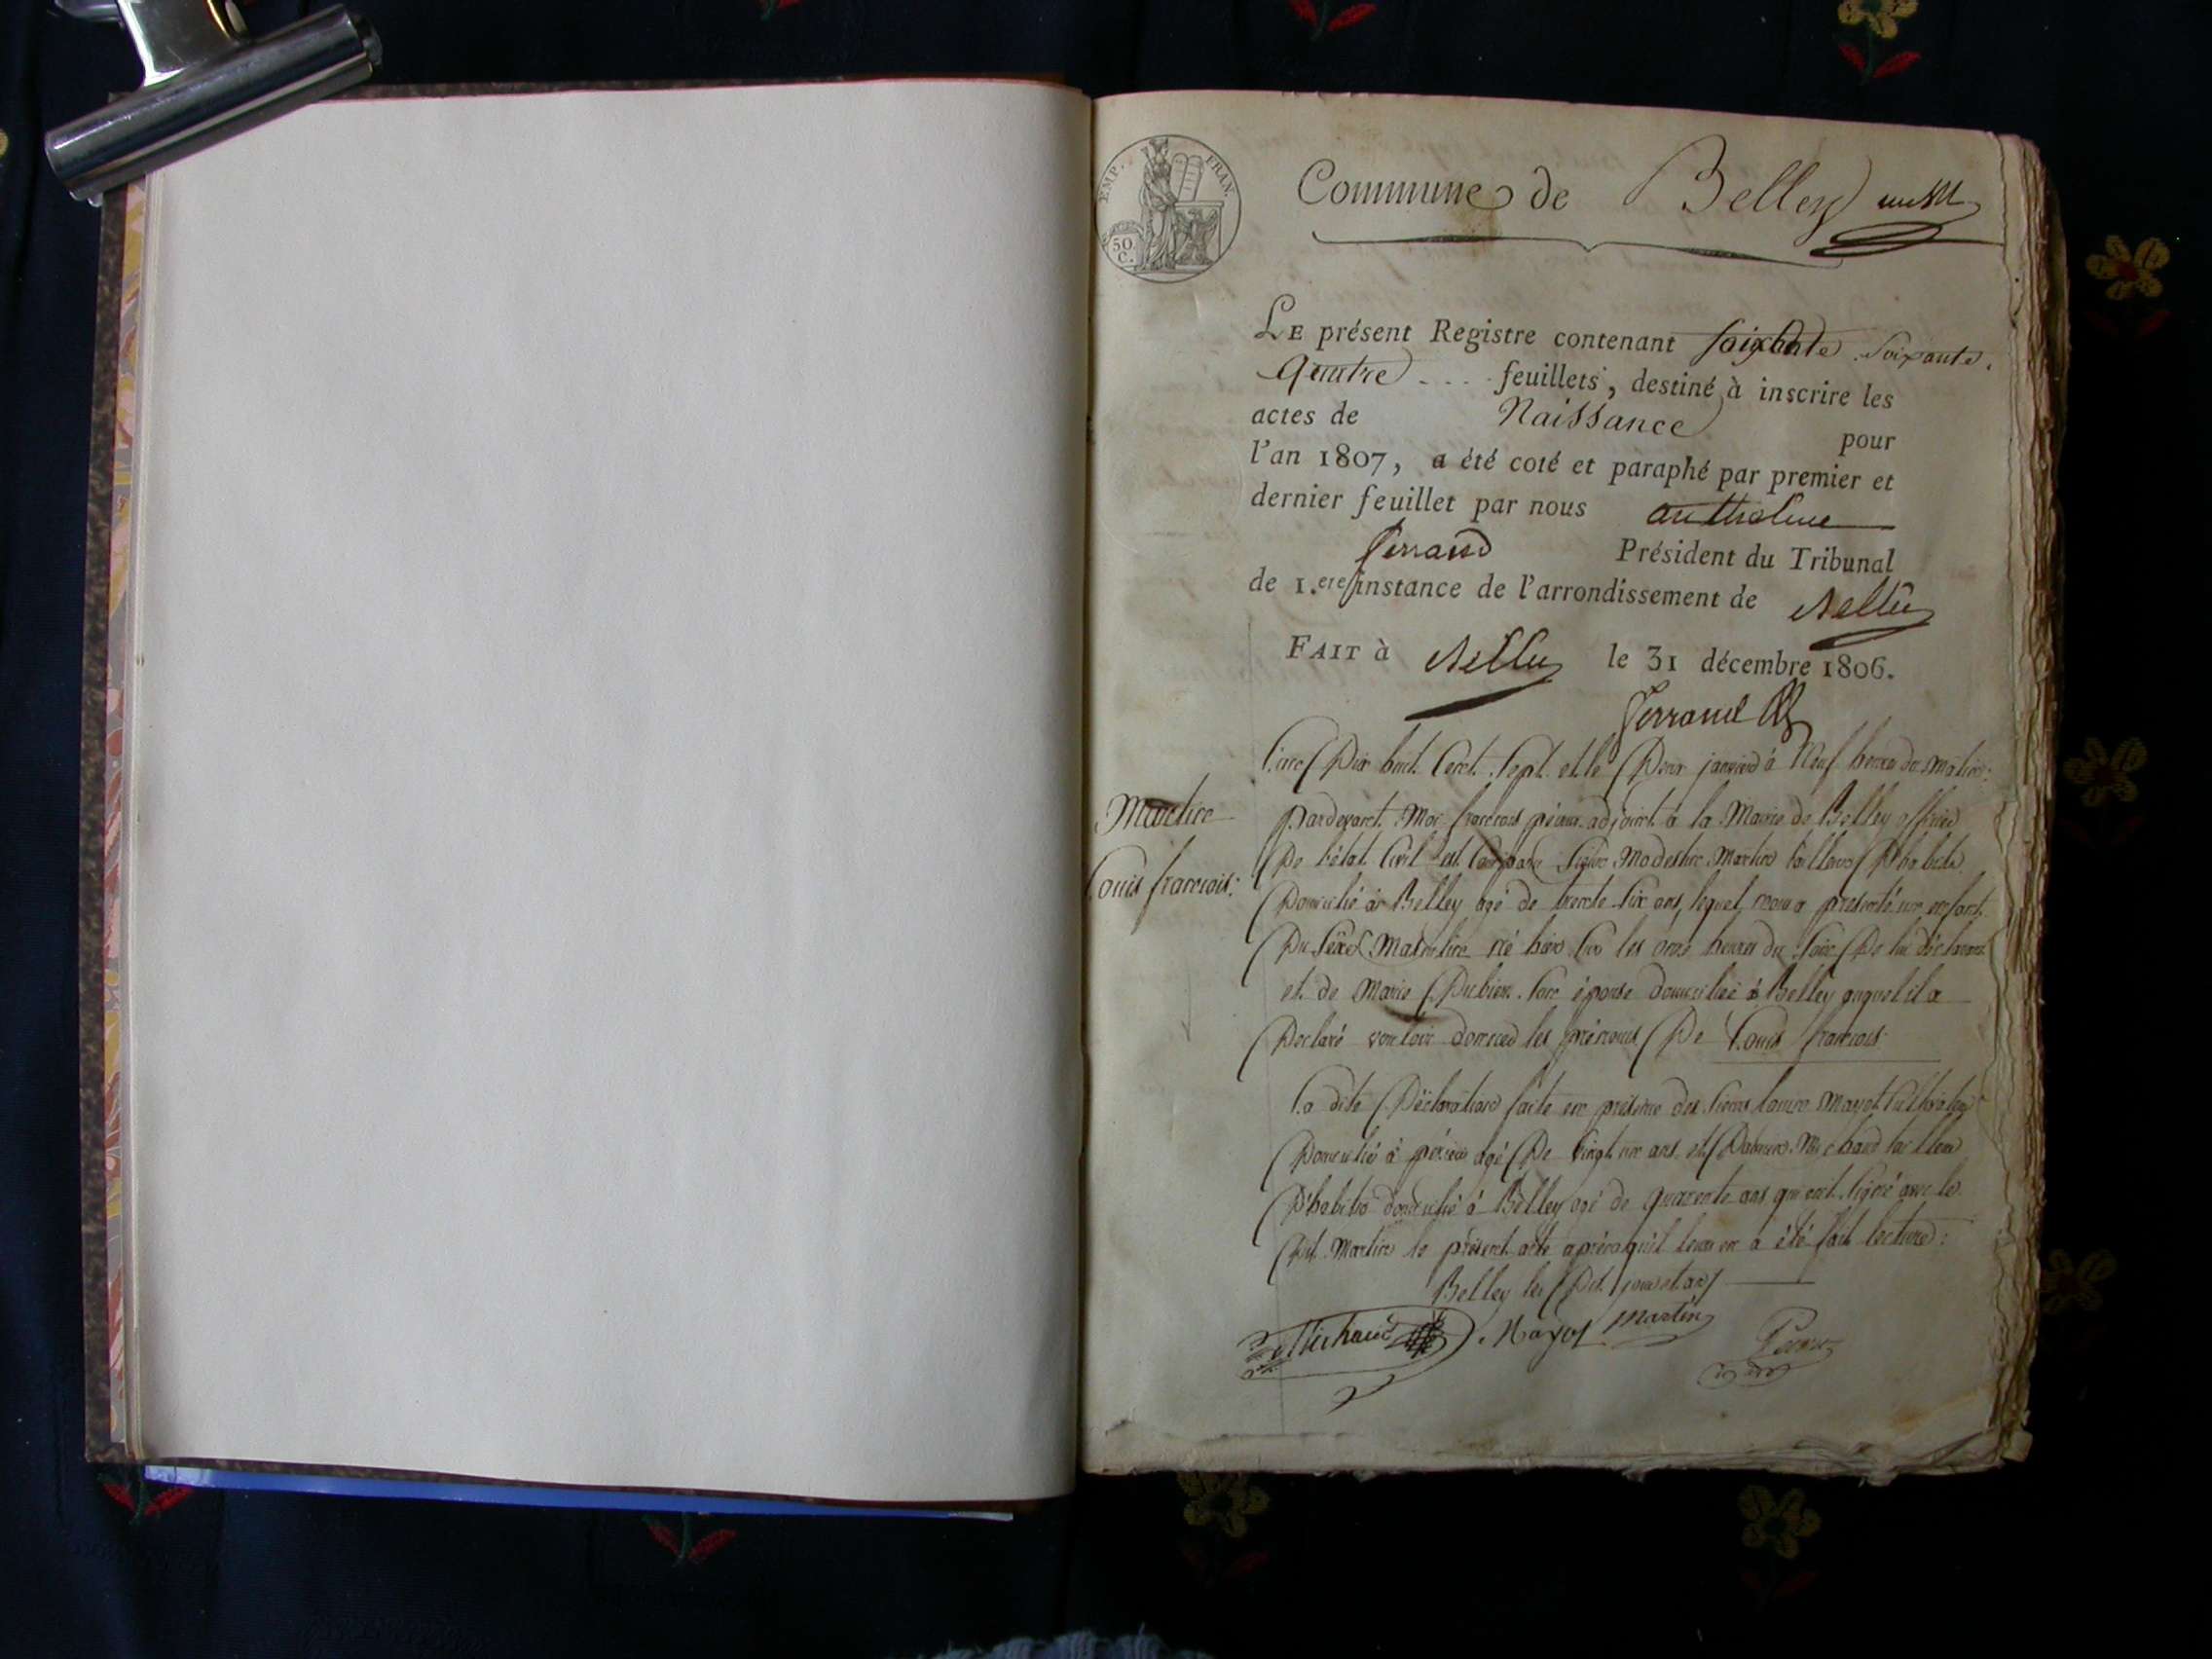 EMP. FRAN.
50 C.
Commune de Belley
LE présent Registre contenant soixante soixante
quatre feuillets, destiné à inscrire les
actes de Naissance pour
l'an 1807, a été coté et paraphé par premier et
dernier feuillet par nous anthelme
ferrand Président du Tribunal
de 1.ere instance de l'arrondissement de Belley
FAIT à Belley le 31 décembre 1806.
ferrand
L'an Dix huit Cent Sept et le Deux janvier à Neuf heures du matin
Martin
pardevant Moi françois adjoint à la Mairie de Belley officier
Louis françois
De l'état Civil est Comparu Martin tailleur D'habits
Domicilié à Belley agé de trente Six ans, lequel nous a presenté un enfant
Du Sexe Masculin né hier Sur les onze heures du Soir De lui déclarant
et de Marie Dubien Son épouse domiciliée à Belley auquel il a
Declaré vouloir donner les prénoms De Louis françois
La dite Déclaration faite en présence des Sieurs Mayot Cultivateur
Domicilié à agé De Vingt un ans et Michaud tailleur
D'habits domicilié à Belley agé de quarente ans qui ont Signé avec le
Dit Martin le présent acte après qu'il leur en a été fait lecture:
Belley les Dit jour et an
Michaud Mayot Martin